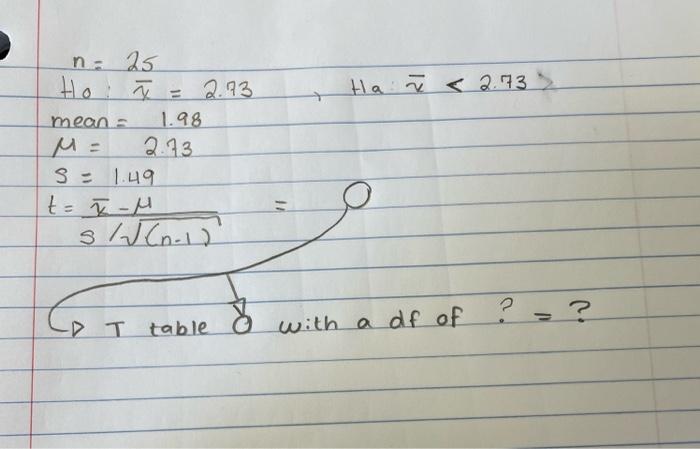 n = 25
Ho: x̄ = 2.73 , Ha: x̄ < 2.73
mean = 1.98
μ = 2.73
S = 1.49
t = x̄ - μ =
s / √(n-1)
T table with a df of ? = ?